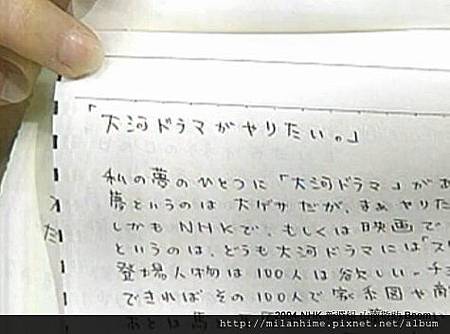 「大河ドラマがやりたい。」
私の夢のひとつに「大河ドラマ」があ
夢というのは大ゲサだが、まぁやりた
しかもNHKで、もしくは映画で
というのは、どうも大河ドラマには「ス
登場人物は100人は欲しい。チ
できればその100人で家系図や
あとは馬
た
2004 NHK
Room」
http://milanhime.pixnet.net/album